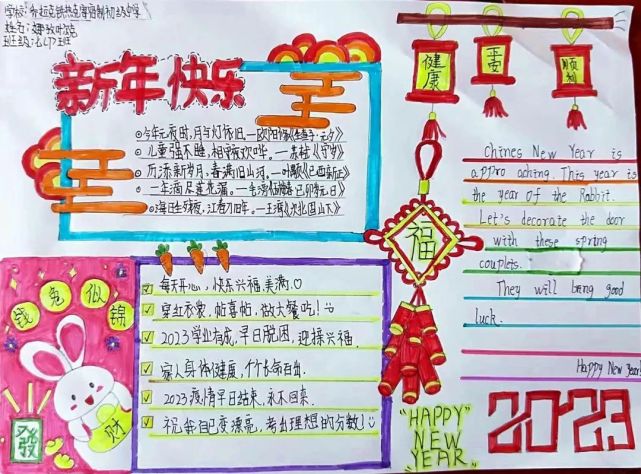 学校:
姓名:
班级:
新年快乐
今年元夜时,月与灯依旧。—欧阳修《生查子·元夕》
儿童强不睡,相守夜欢哗。—苏轼《守岁》
历添新岁月,春满旧山河。—叶颙《己酉新正》
一年滴尽莲花漏。—毛滂《
海日生残夜,江春入旧年。—王湾《次北固山下》
健康
平安
顺利
Chines New Year is
appro aching. This year is
the year of the Rabbit.
Let's decorate the door
with these spring
couplets.
They will bring good
luck.
Happy New Year!
福
钱兔似锦
發
财
每天开心,快乐兴福,美满.
穿红衣裳,帖喜帖,做大餐吃!
2023学业有成,早日脱困,迎接兴福.
家人身体健康,个个长命百岁.
2023疫情早日结束,永不回来.
祝我自己变漂亮,考出理想的分数!
"HAPPY"
NEW
YEAR"
2023